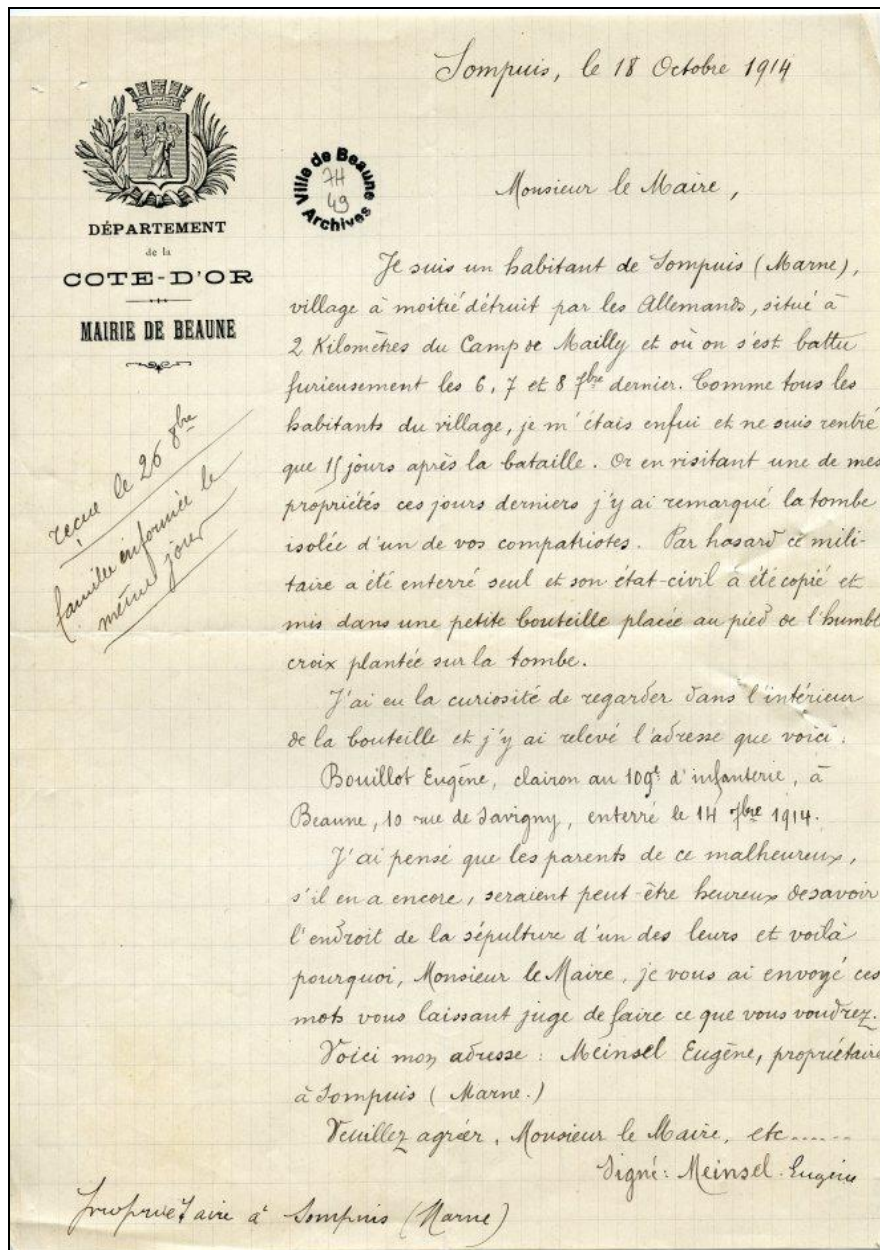 Sompuis, le 18 Octobre 1914
DÉPARTEMENT
de la
COTE-D'OR
MAIRIE DE BEAUNE
Ville de Beaune
7H
49
Archives
reçue le 26 8bre
famille informée le
même jour
Monsieur le Maire,
Je suis un habitant de Sompuis (Marne),
village à moitié détruit par les Allemands, situé à
2 Kilomètres du Camp de Mailly et où on s'est battu
furieusement les 6, 7 et 8 7bre dernier. Comme tous les
habitants du village, je m'étais enfui et ne suis rentré
que 15 jours après la bataille. Or en visitant une de mes
propriétés ces jours derniers j'y ai remarqué la tombe
isolée d'un de vos compatriotes. Par hasard ce mili-
taire a été enterré seul et son état-civil à été copié et
mis dans une petite bouteille placée au pied de l'humbl
croix plantée sur la tombe.
J'ai eu la curiosité de regarder dans l'intérieur
de la bouteille et j'y ai relevé l'adresse que voici :
Bouillot Eugène, clairon au 109e d'infanterie, à
Beaune, 10 rue de Savigny, enterré le 14 7bre 1914.
J'ai pensé que les parents de ce malheureux,
s'il en a encore, seraient peut-être heureux de savoir
l'endroit de la sépulture d'un des leurs et voilà
pourquoi, Monsieur le Maire, je vous ai envoyé ces
mots vous laissant juge de faire ce que vous voudrez.
Voici mon adresse : Meinsel Eugène, propriétaire
à Sompuis (Marne.)
Veuillez agréer, Monsieur le Maire, etc......
Signé : Meinsel-Eugène
propriétaire à Sompuis (Marne)